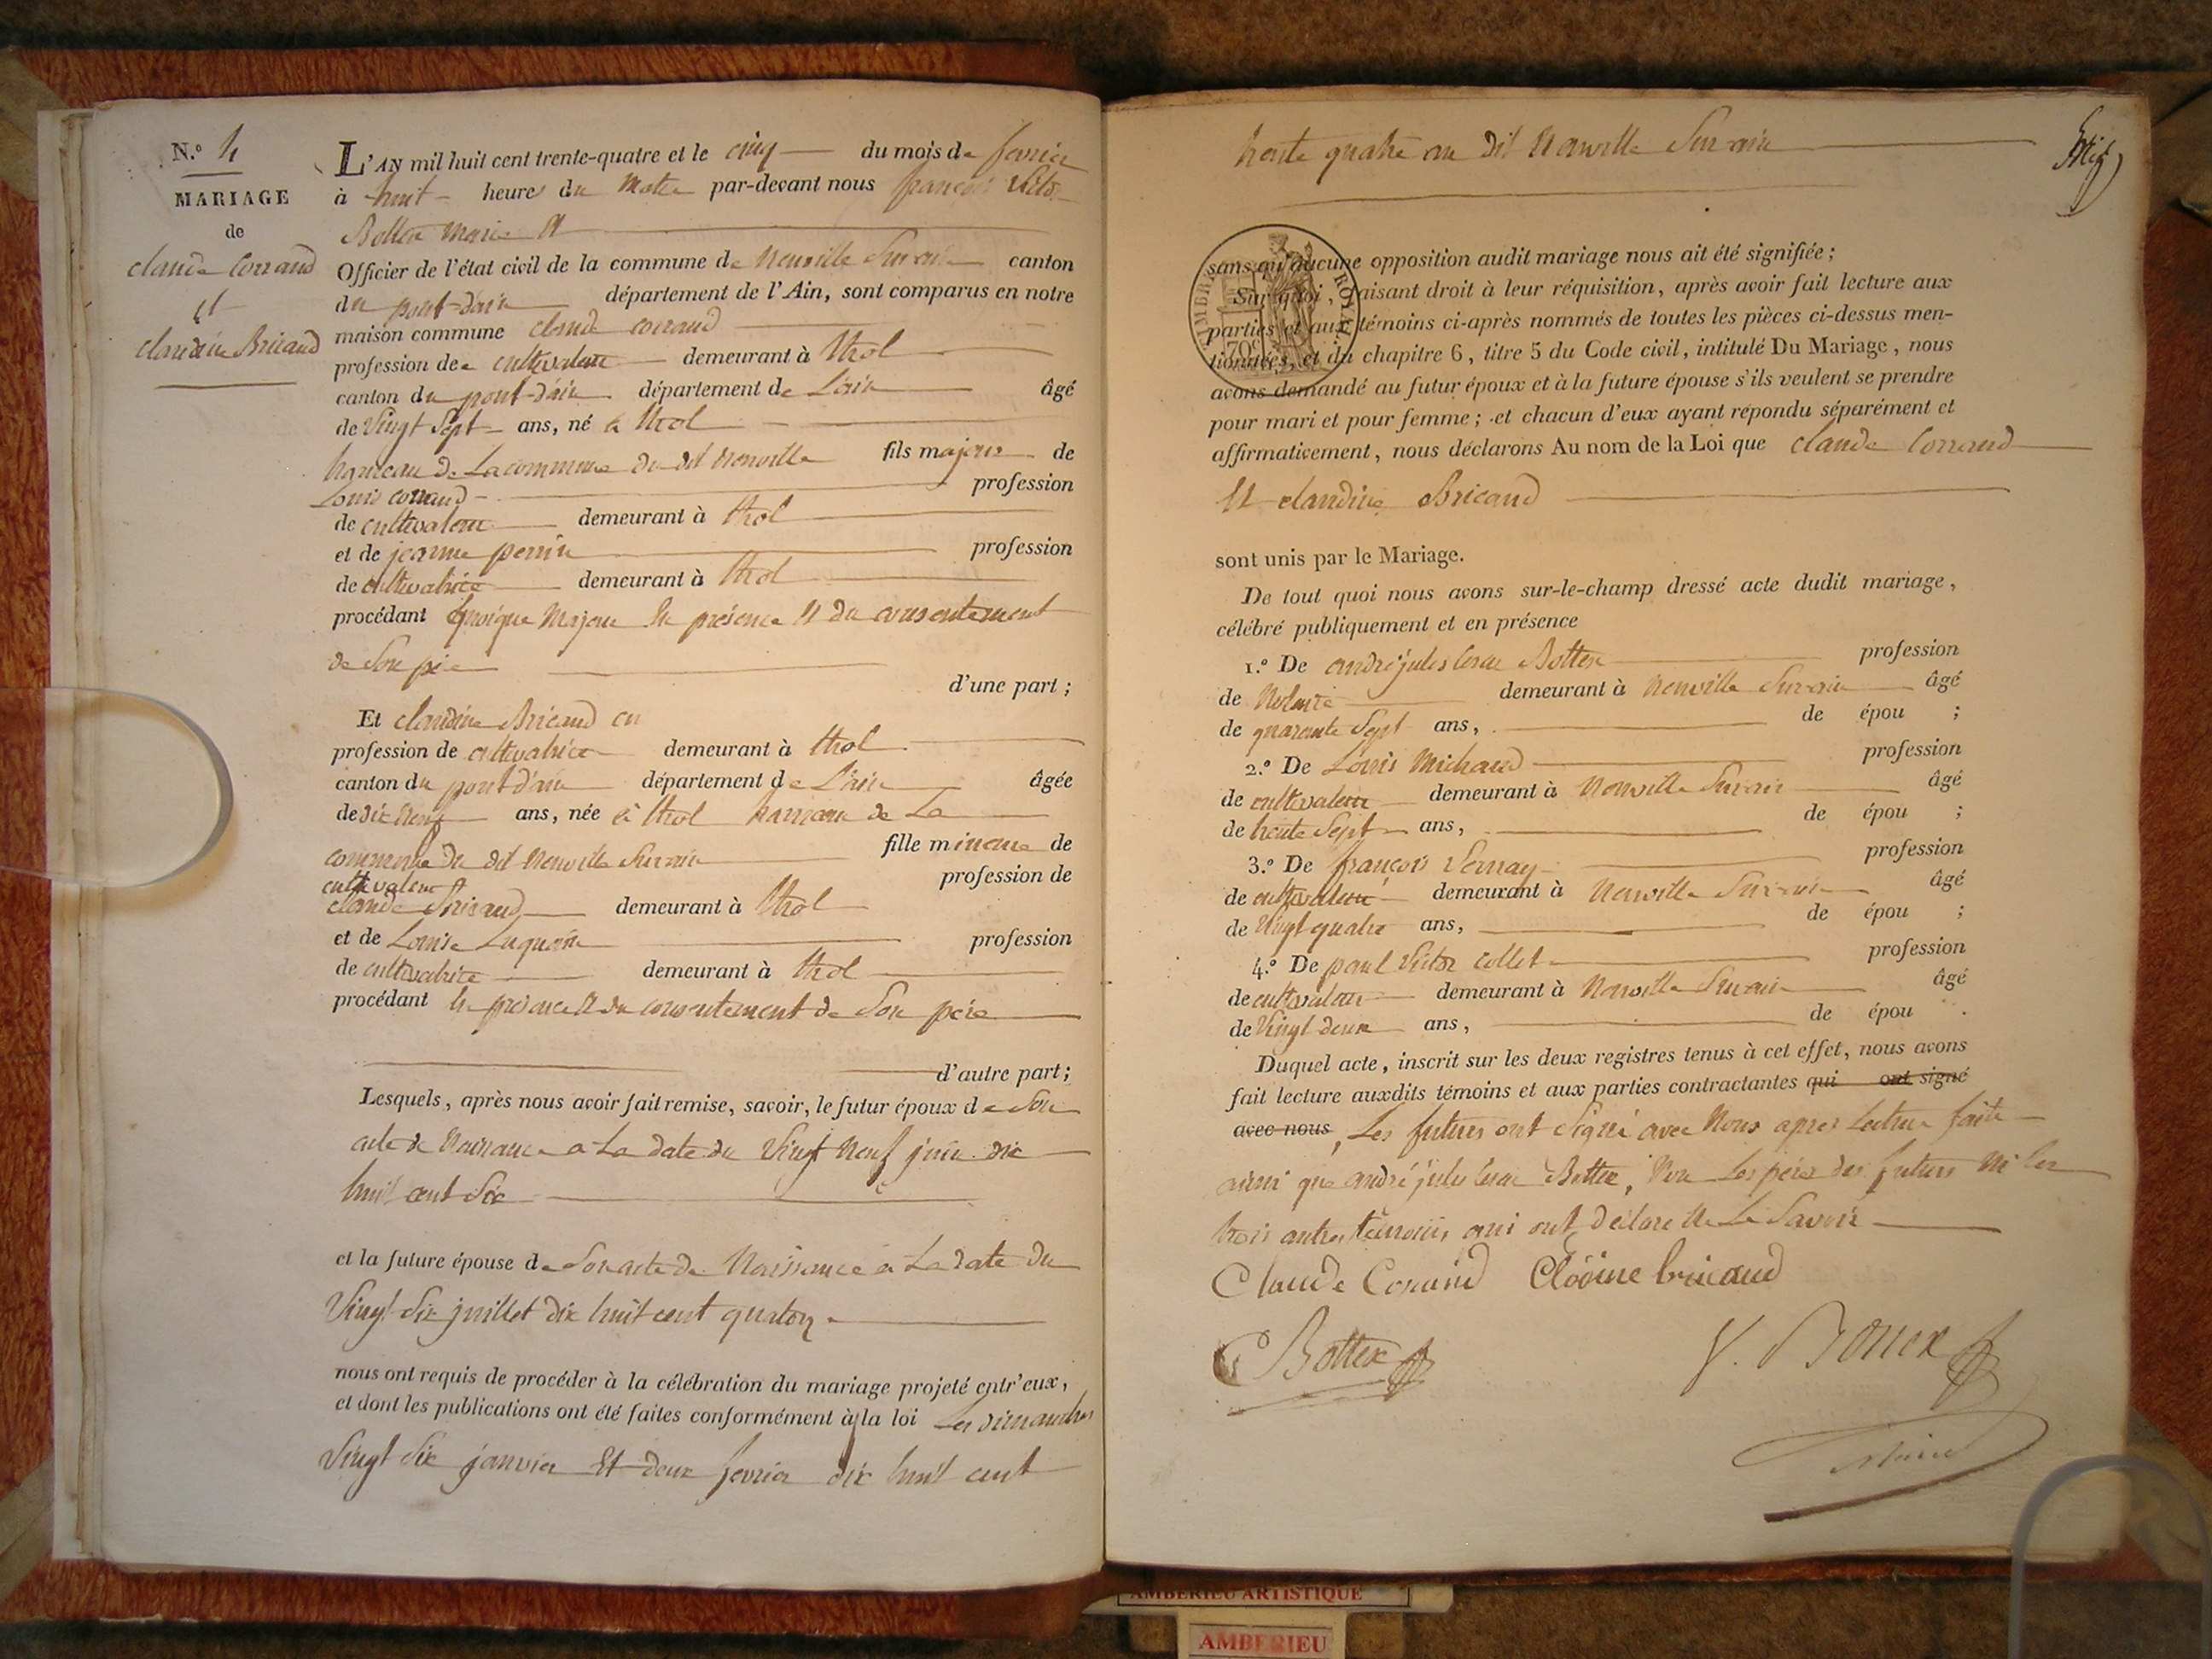 N.º 4
MARIAGE
de
claude Corraud
et
claudine Bricaud
L'AN mil huit cent trente-quatre et le cinq du mois de fevrier
à huit heures du matin par-devant nous françois Victor
Bottex Maire et
Officier de l'état civil de la commune de Neuville Sur ain canton
du pont-d'ain département de l'Ain, sont comparus en notre
maison commune claude corraud
profession de cultivateur demeurant à thol
canton du pont-d'ain département de L'ain âgé
de Vingt Sept ans, né à thol
hameau de La commune du dit Neuville fils majeur de
Louis corraud profession
de cultivateur demeurant à thol
et de jeanne perrin profession
de cultivatrice demeurant à thol
procédant quoique Majeur en présence et du consentement
de Son père
d'une part ;
Et claudine Bricaud
profession de cultivatrice demeurant à thol
canton du pont d'ain département de L'ain âgée
de dix neuf ans, née à thol hameau de La
commune du dit Neuville Sur ain fille mineure de
cultivateur profession de
claude Bricaud demeurant à thol
et de Louise profession
de cultivatrice demeurant à thol
procédant en présence et du consentement de Son père
d'autre part ;
Lesquels, après nous avoir fait remise, savoir, le futur époux de Son
acte de Naissance a La date du Vingt Neuf juin dix
huit cent Six
et la future épouse de Son acte de Naissance a La date du
Vingt Six juillet dix huit cent quatorze
nous ont requis de procéder à la célébration du mariage projeté entr'eux,
et dont les publications ont été faites conformément à la loi Les dimanches
Vingt Six janvier Et deux fevrier dix huit cent
trente quatre au dit Neuville Sur ain
ROYAL
70
sans qu'aucune opposition audit mariage nous ait été signifiée ;
Sur quoi, faisant droit à leur réquisition, après avoir fait lecture aux
parties et aux témoins ci-après nommés de toutes les pièces ci-dessus men-
tionnées, et du chapitre 6, titre 5 du Code civil, intitulé Du Mariage, nous
avons demandé au futur époux et à la future épouse s'ils veulent se prendre
pour mari et pour femme ; et chacun d'eux ayant répondu séparément et
affirmativement, nous déclarons Au nom de la Loi que claude Corraud
Et claudine Bricaud
sont unis par le Mariage.
De tout quoi nous avons sur-le-champ dressé acte dudit mariage,
célébré publiquement et en présence
1.º De andré jules César Bottex profession
de Notaire demeurant à Neuville Sur ain âgé
de quarante Sept ans, de épou ;
2.º De Louis Michaud profession
de cultivateur demeurant à Neuville Sur ain âgé
de trente Sept ans, de épou ;
3.º De françois Vernay profession
de cultivateur demeurant à Neuville Sur ain âgé
de Vingt quatre ans, de épou ;
4.º De paul Victor collet profession
de cultivateur demeurant à Neuville Sur ain âgé
de Vingt deux ans, de épou .
Duquel acte, inscrit sur les deux registres tenus à cet effet, nous avons
fait lecture auxdits témoins et aux parties contractantes qui ont signé
avec nous, Les futurs ont Signé avec Nous apres Lecture faite
ainsi que andré jules César Bottex, Non Les pères des futurs Ni les
trois autres témoins qui ont déclaré Ne Le Savoir
Claude Coraud Clodine bricaud
Bottex V. Bottex
Maire
AMBERIEU ARTISTIQUE
AMBERIEU